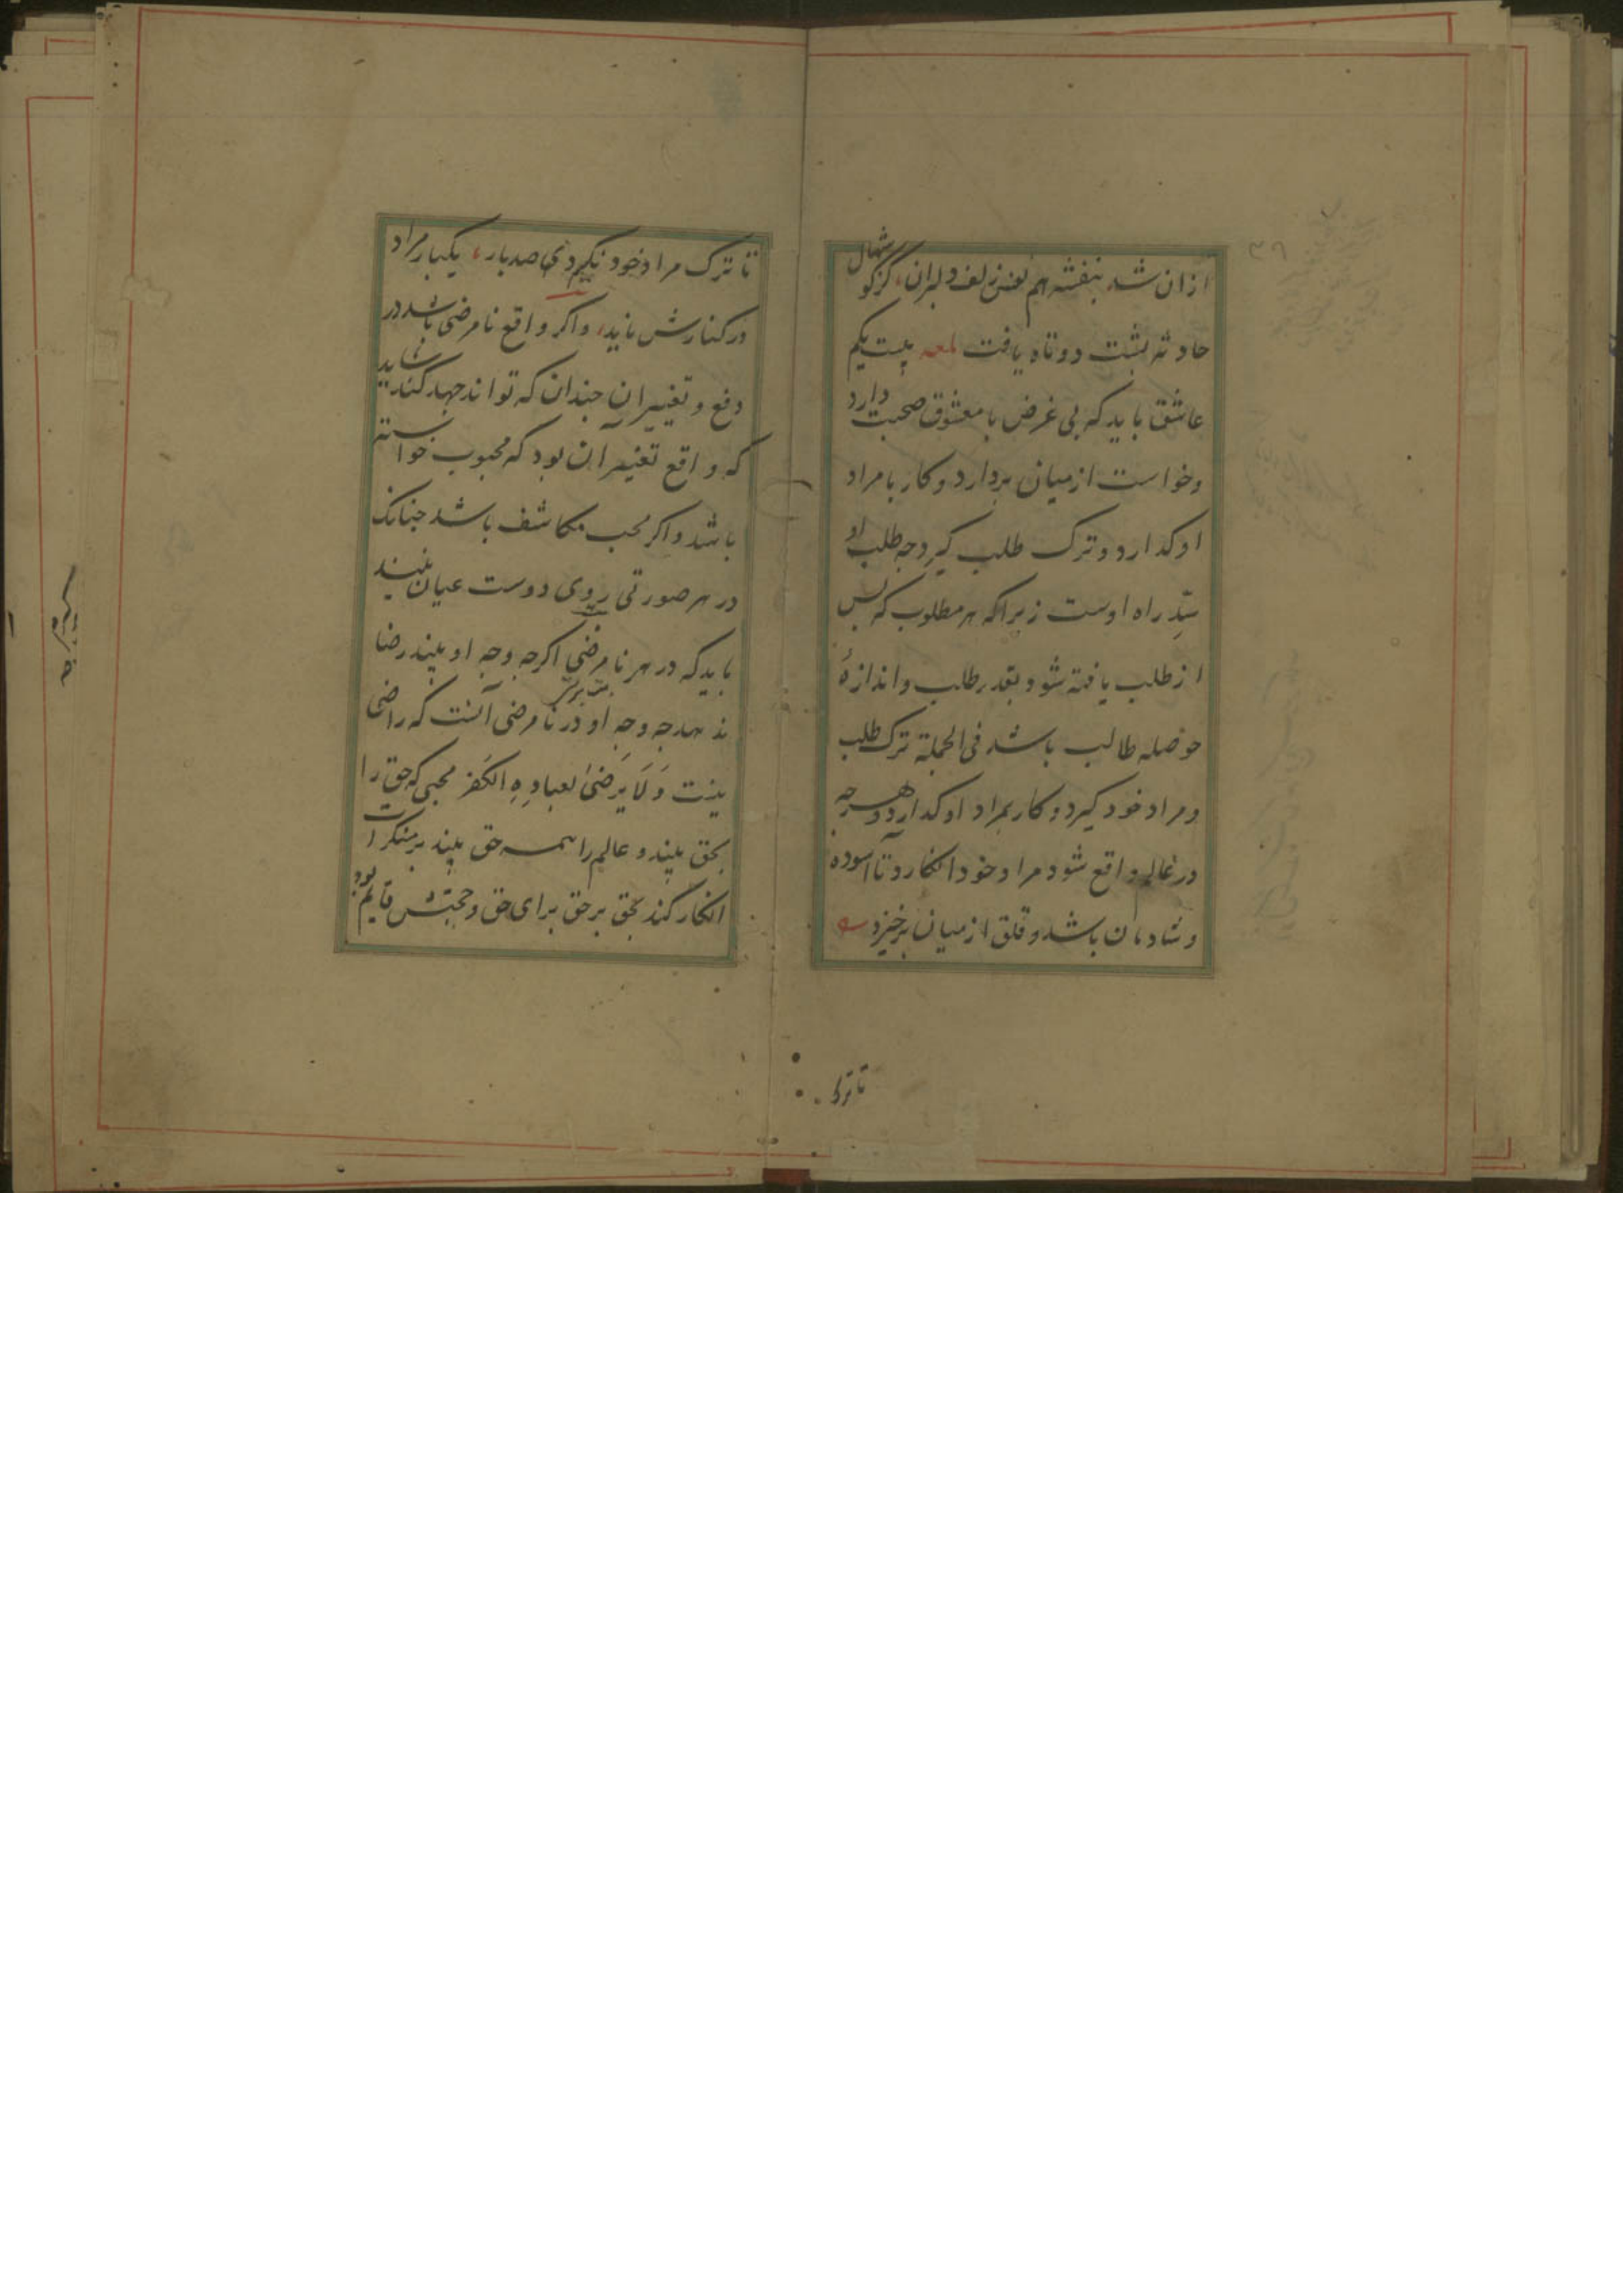 ازان شد بنفشه هم نفس زلف دلبران، کز گوشمال
حادثه پشت دو تاه یافت لمعه بیست یکم
عاشق باید که بی غرض با معشوق صحبت دارد
وخواست از میان بردارد و کار با مراد
او کذارد و ترک طلب کیرد جه طلب او
سدّ راه اوست زیرا که هر مطلوب که پس
از طلب یافته شود بقدر طلب و اندازهٔ
حوصله طالب باشد فی الجمله ترک طلب
ومراد خود کیرد و کار بمراد او کذارد و هرجه
در عالم واقع شود مراد خود انکارد تا آسوده
وشادمان باشد و قلق از میان برخیزد
تا ترک
تا ترک مراد خود نکیردی صد بار، یکبار مراد
در کنارش ناید، واکر واقع نا مرضی باشد در
دفع و تغییر آن جندان که تواند جهد کند شاید
که واقع تغییر آن بود که محبوب خواسته
باشد واکر محب مکاشف باشد جنانک
در هر صورتی روی دوست عیان بیند
باید که در هر نا مرضی اکرجه وجه او بیند رضا
ندهد جه وجه او در نا مرضی آنست که راضی
نیست وَلَا یَرْضیٰ لعبادِهِ الکُفر محبی که حق را
بحق بیند و عالم را همه حق بیند بر منکرات
انکار کند بحق بر حق برای حق و حجتش قایم بود